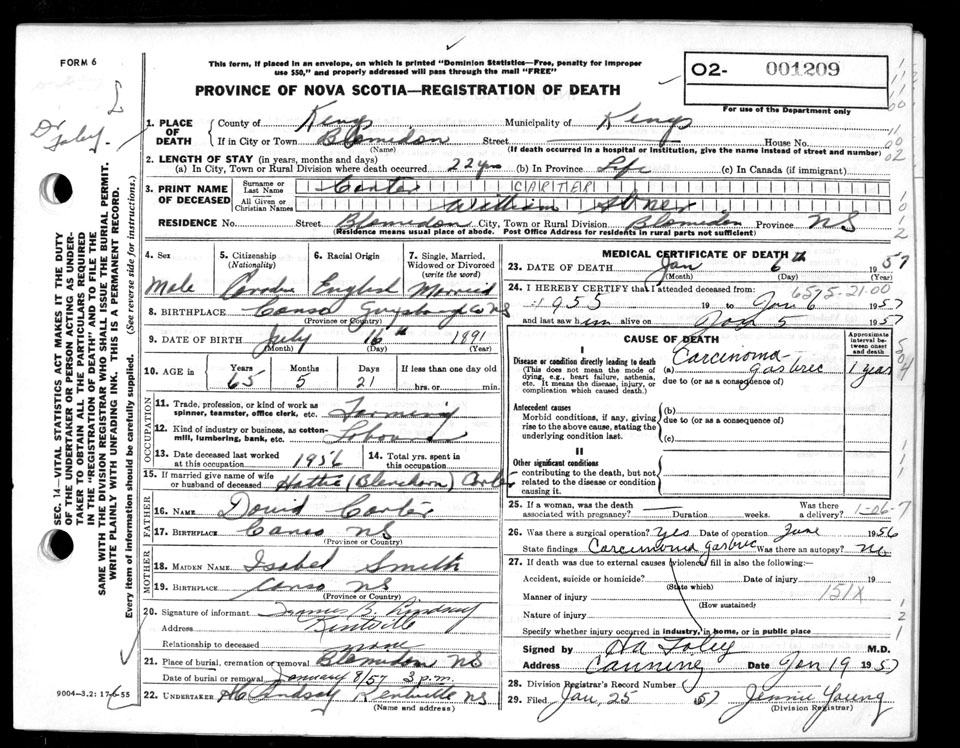 FORM 6
This form, if placed in an envelope, on which is printed "Dominion Statistics—Free, penalty for improper
use $50," and properly addressed will pass through the mail "FREE"
PROVINCE OF NOVA SCOTIA—REGISTRATION OF DEATH
O2- 001209
For use of the Department only
Dr Foley
SEC. 14—VITAL STATISTICS ACT MAKES IT THE DUTY
OF THE UNDERTAKER OR PERSON ACTING AS UNDER-
TAKER TO OBTAIN ALL THE PARTICULARS REQUIRED
IN THE "REGISTRATION OF DEATH" AND TO FILE THE
SAME WITH THE DIVISION REGISTRAR WHO SHALL ISSUE THE BURIAL PERMIT.
WRITE PLAINLY WITH UNFADING INK. THIS IS A PERMANENT RECORD.
Every item of information should be carefully supplied. (See reverse side for instructions.)
1. PLACE OF DEATH
County of Kings Municipality of Kings
If in City or Town Blomidon Street House No.
(Name) (If death occurred in a hospital or institution, give the name instead of street and number)
2. LENGTH OF STAY (in years, months and days)
(a) In City, Town or Rural Division where death occurred 22 yrs (b) In Province Life (c) In Canada (if immigrant)
3. PRINT NAME OF DECEASED
Surname or Last Name Carter CARTER
All Given or Christian Names William Abner
RESIDENCE No. Street Blomidon City, Town or Rural Division Blomidon Province NS
(Residence means usual place of abode. Post Office Address for residents in rural parts not sufficient)
4. Sex Male
5. Citizenship (Nationality) Canada
6. Racial Origin English
7. Single, Married, Widowed or Divorced (write the word) Married
8. BIRTHPLACE Canso Guysborough Co NS
(Province or Country)
9. DATE OF BIRTH July 16th 1891
(Month) (Day) (Year)
10. AGE in Years 65 Months 5 Days 21 If less than one day
hrs. or min.
OCCUPATION
11. Trade, profession, or kind of work as
spinner, teamster, office clerk, etc. Farming
12. Kind of industry or business, as cotton-
mill, lumbering, bank, etc.
13. Date deceased last worked at this occupation 1956 14. Total yrs. spent in this occupation
15. If married give name of wife or husband of deceased Hattie (Blenkhorn) Carter
FATHER
16. NAME David Carter
17. BIRTHPLACE Canso NS
(Province or Country)
MOTHER
18. MAIDEN NAME Isabel Smith
19. BIRTHPLACE Canso NS
(Province or Country)
20. Signature of informant B. Lindsay
Address Kentville
Relationship to deceased none
21. Place of burial, cremation or removal Blomidon NS
Date of burial or removal January 8/57 3 p.m.
22. UNDERTAKER Lindsay Kentville NS
(Name and address)
9004—3.2: 17-6-55
MEDICAL CERTIFICATE OF DEATH
23. DATE OF DEATH Jan 6th 1957
(Month) (Day) (Year)
24. I HEREBY CERTIFY that I attended deceased from: 6595-21.00
1955 19 to Jan 6 1957
and last saw him alive on Jan 5 1957
CAUSE OF DEATH
Approximate interval between onset and death
I
Disease or condition directly leading to death
(This does not mean the mode of
dying, e.g., heart failure, asthenia,
etc. It means the disease, injury, or
complication which caused death.)
(a) Carcinoma gastric 1 year
due to (or as a consequence of)
Antecedent causes
Morbid conditions, if any, giving
rise to the above cause, stating the
underlying condition last.
(b)
due to (or as a consequence of)
(c)
II
Other significant conditions
contributing to the death, but not
related to the disease or condition
causing it.
25. If a woman, was the death associated with pregnancy? Duration weeks. Was there a delivery? 1-06-7
26. Was there a surgical operation? Yes Date of operation June 1956
State findings Carcinoma gastric Was there an autopsy? No
27. If death was due to external causes (violence) fill in also the following:—
Accident, suicide or homicide? Date of injury 19
(State which)
Manner of injury 151X
(How sustained)
Nature of injury
Specify whether injury occurred in industry, in home, or in public place
Signed by Foley M.D.
Address Canning Date Jan 19 1957
28. Division Registrar's Record Number
29. Filed Jan, 25 57 Jennie Young
(Division Registrar)